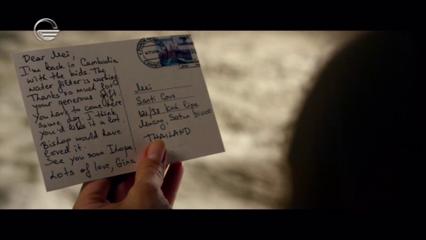 Dear Mei,
I'm back in Cambodia
with the kids. The
water filter is working
Thanks so much for
your generous gift
You have to come here
some day I think
you'd like it a lot
Bishop would have
loved it.
See you soon I hope
Lots of love, Gina
Mei
Santi Cove
Koh Lipe
Satun
THAILAND